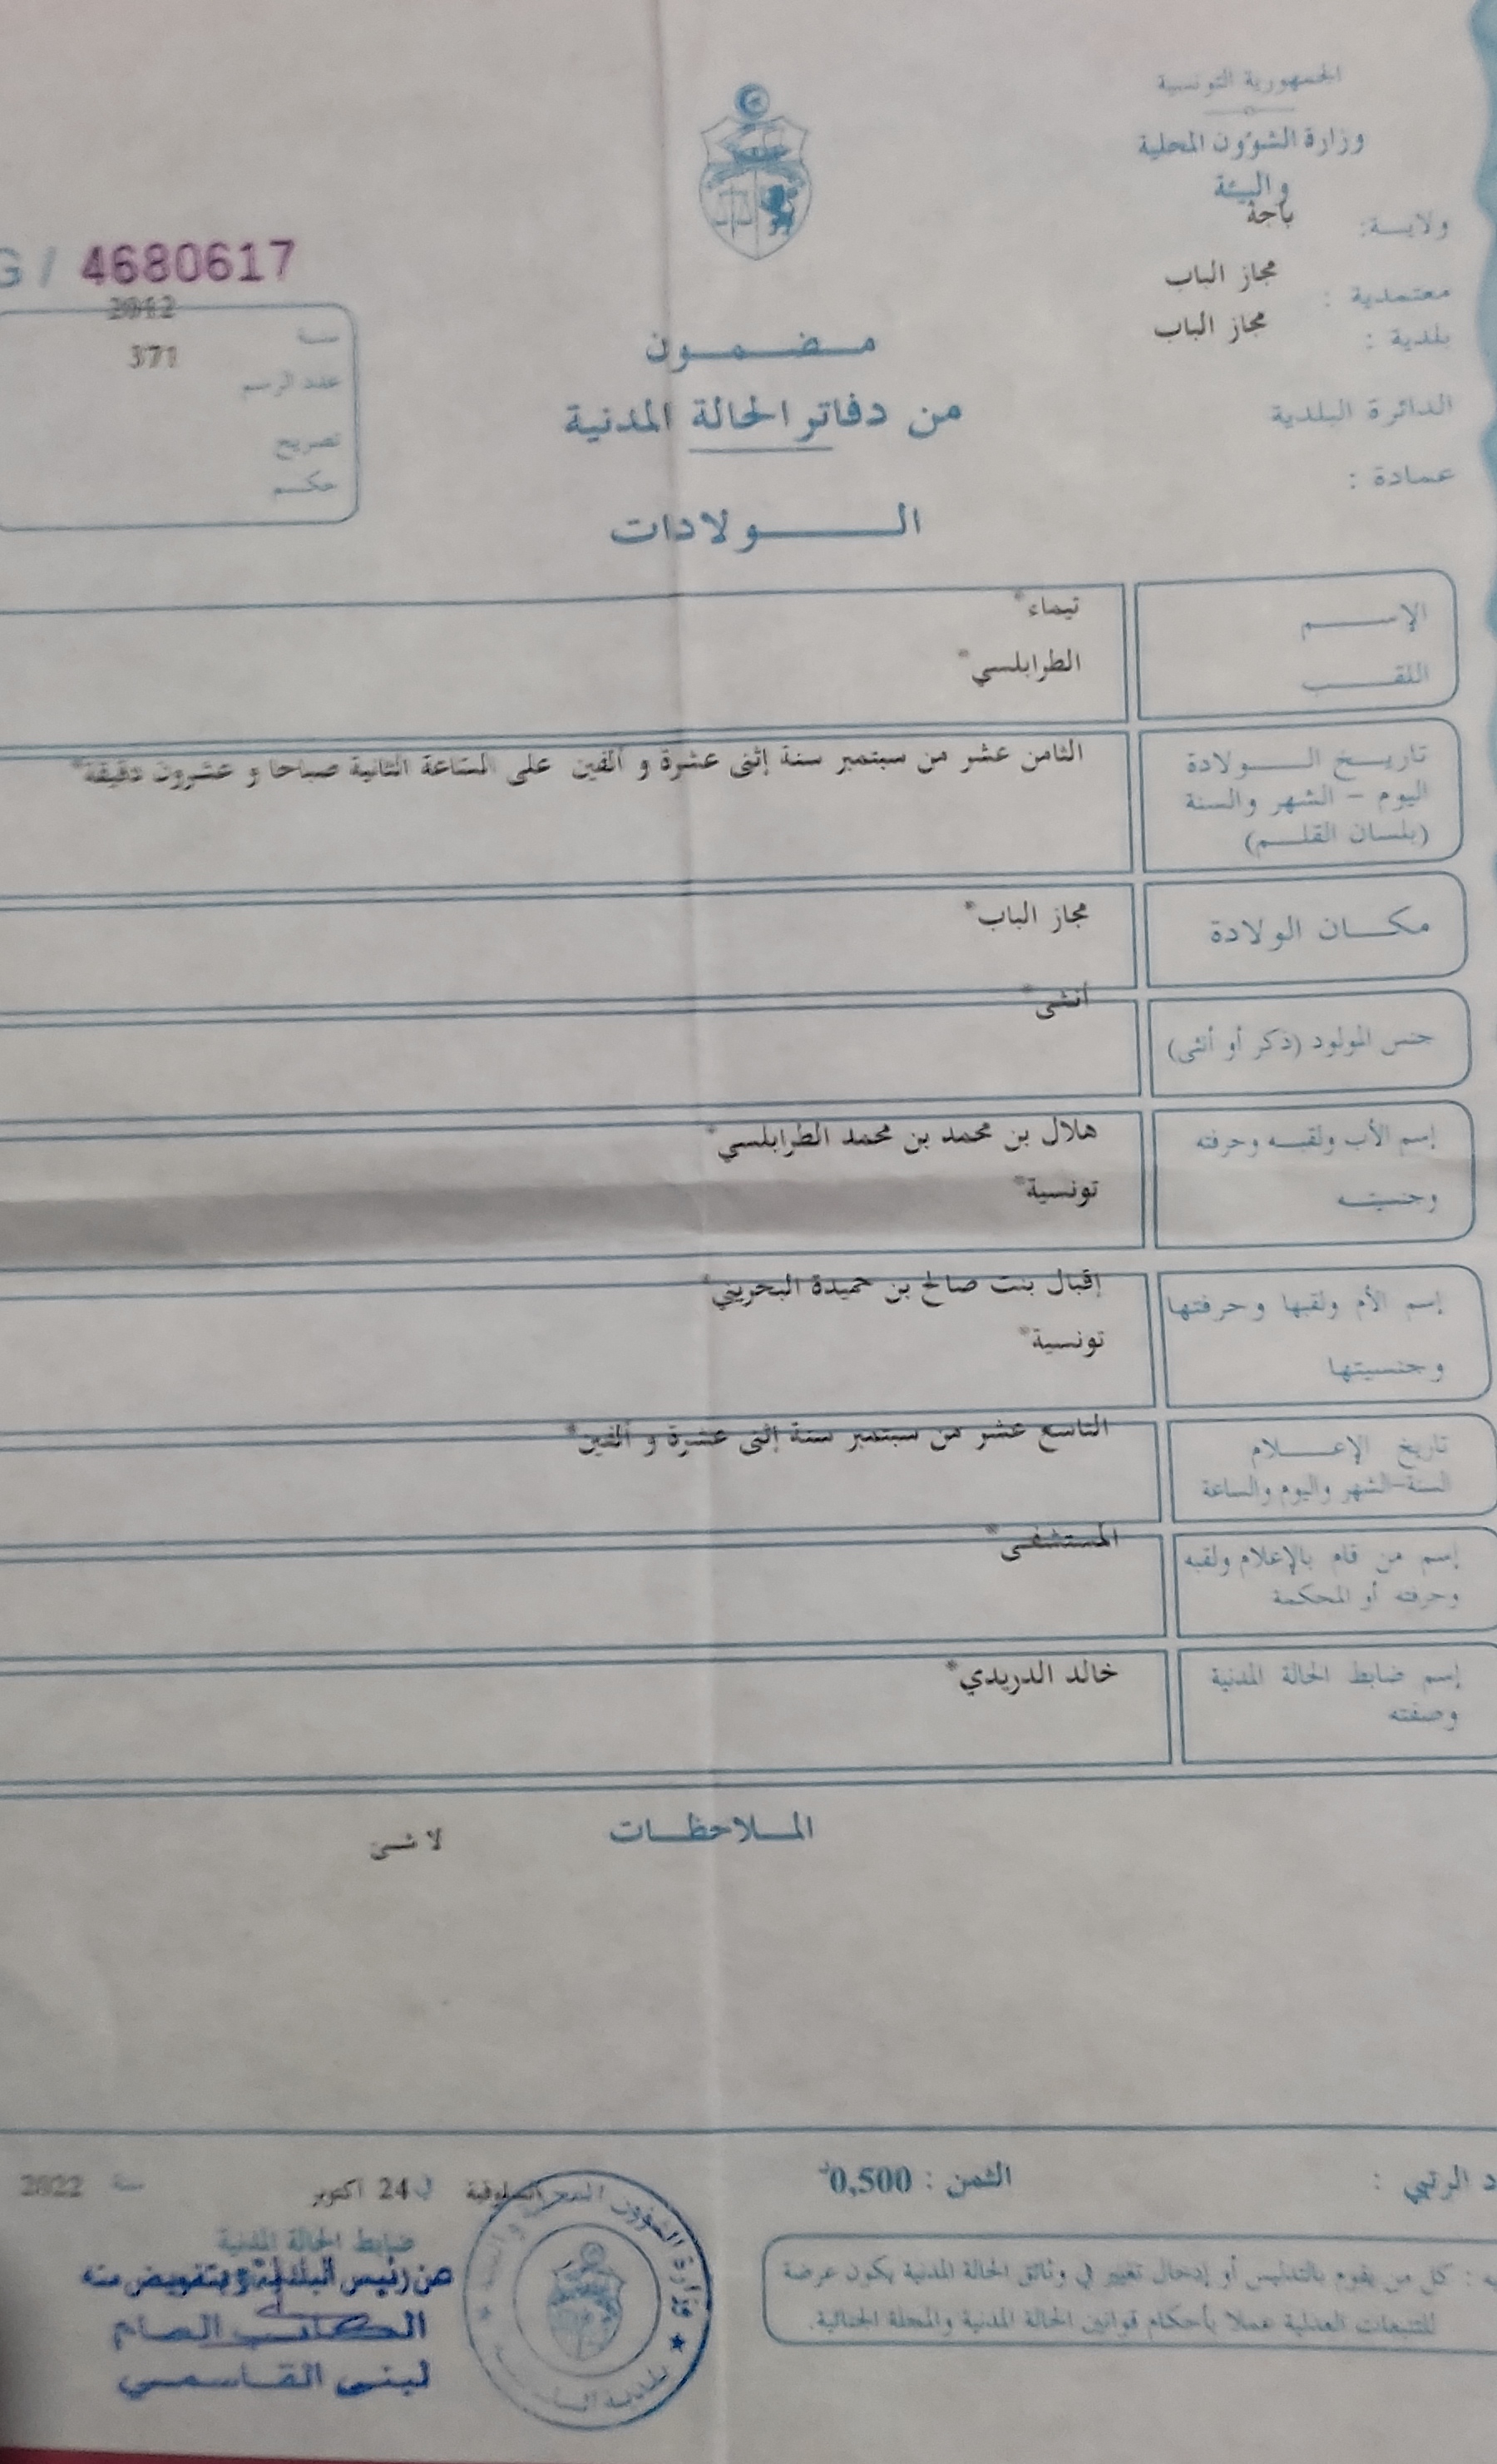 الجمهورية التونسية
وزارة الشؤون المحلية
والبيئة
ولايــة: باجة
معتمدية : مجاز الباب
بلدية : مجاز الباب
الدائرة البلدية
عمادة :
G / 4680617
سنة 2012
عدد الرسم 371
تصريح
حكم
مضمون
من دفاتر الحالة المدنية
الولادات
الإسم تيماء*
اللقب الطرابلسي*
تاريخ الولادة الثامن عشر من سبتمبر سنة إثنى عشرة و ألفين على الساعة الثانية صباحا و عشرون دقيقة*
اليوم - الشهر والسنة
(بلسان القلم)
مكان الولادة مجاز الباب*
أنثى*
جنس المولود (ذكر أو أنثى)
إسم الأب ولقبه وحرفته هلال بن محمد بن محمد الطرابلسي*
وجنسيته تونسية*
إسم الأم ولقبها وحرفتها إقبال بنت صالح بن حميدة البحريني*
وجنسيتها تونسية*
تاريخ الإعلام التاسع عشر من سبتمبر سنة إثنى عشرة و ألفين*
السنة-الشهر واليوم والساعة
إسم من قام بالإعلام ولقبه المستشفى*
وحرفته أو المحكمة
إسم ضابط الحالة المدنية خالد الدريدي*
وصفته
الملاحظات لا شئ
د الرتبي :
الثمن : 0,500د
السلوقية في 24 أكتوبر سنة 2022
ضابط الحالة المدنية
عن رئيس البلدية وبتفويض منه
الكاتب العام
لبنى القاسمي
وزارة الشؤون المحلية والبيئة
به : كل من يقوم بالتدليس أو إدخال تغيير في وثائق الحالة المدنية يكون عرضة
للتتبعات العدلية عملا بأحكام قوانين الحالة المدنية والمجلة الجنائية.